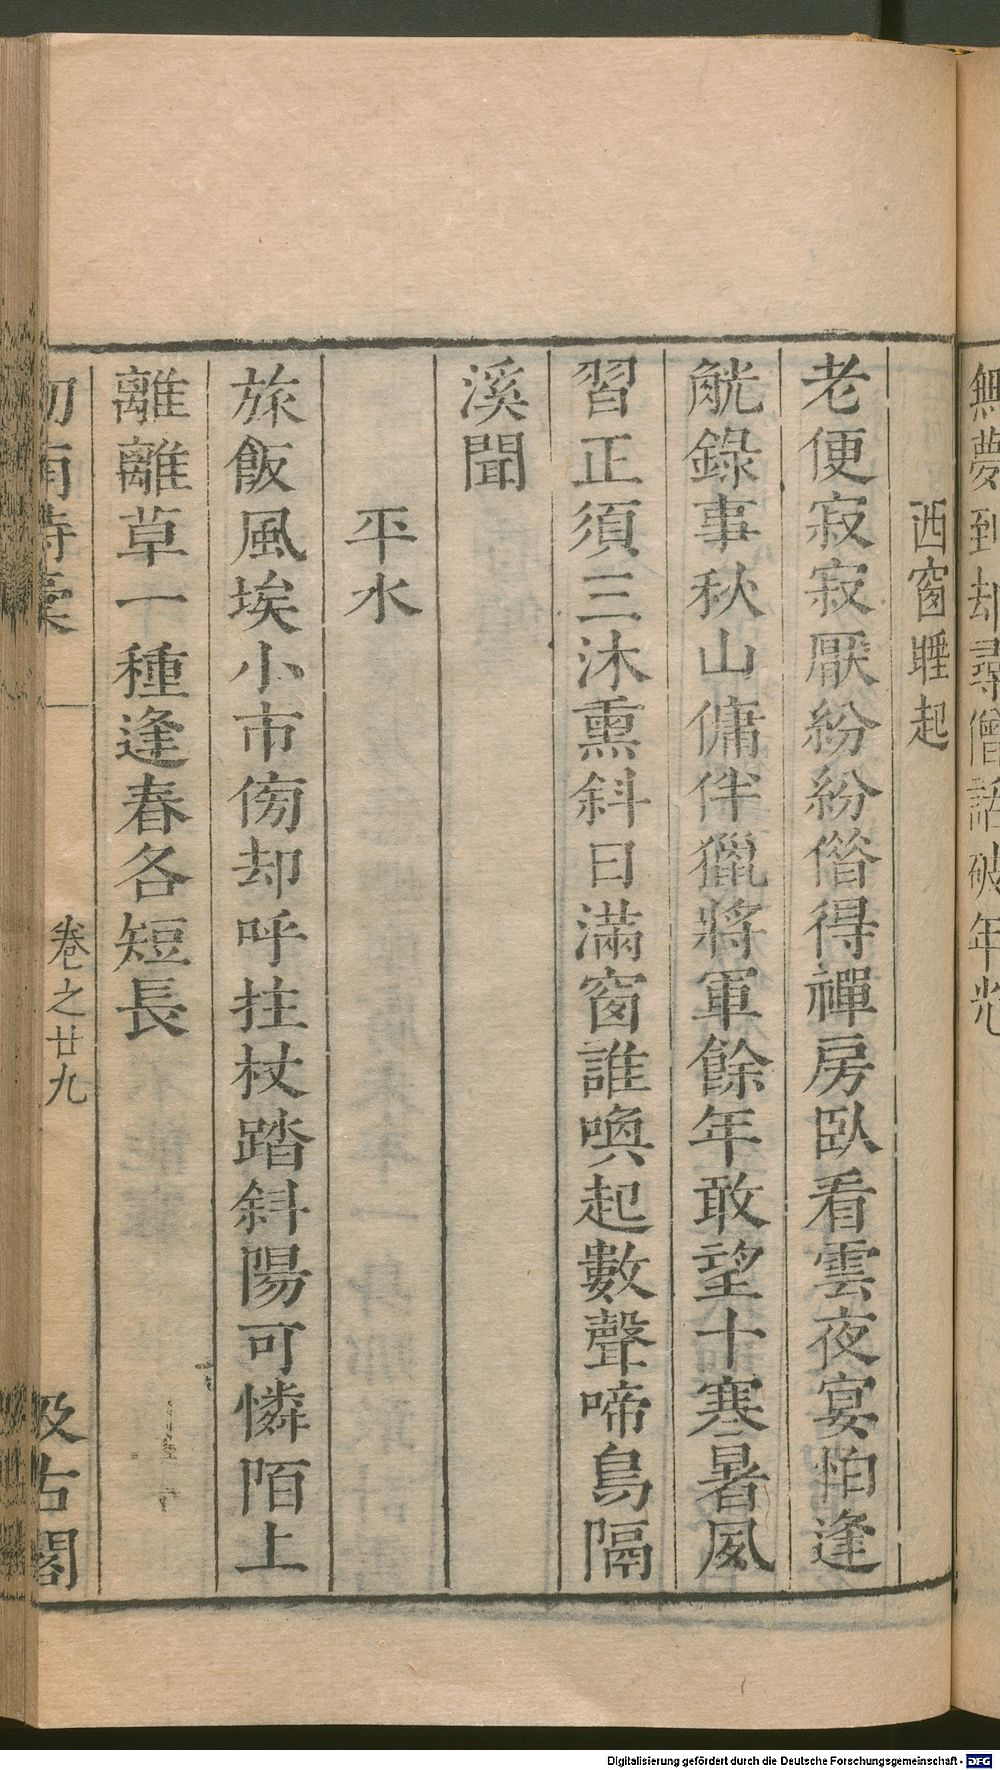 無夢到却尋僧話破年光
西窗睡起
老便寂寂厭紛紛偺得禪房臥看雲夜宴怕逢
觥錄事秋山傭伴獵將軍餘年敢望十寒暑風
習正須三沐熏斜日滿窗誰喚起數聲啼鳥隔
溪聞
平水
旅飯風埃小市傍却呼拄杖踏斜陽可憐陌上
離離草一種逢春各短長
卷之廿九
汲古閣
Digitalisierung gefördert durch die Deutsche Forschungsgemeinschaft - DFG